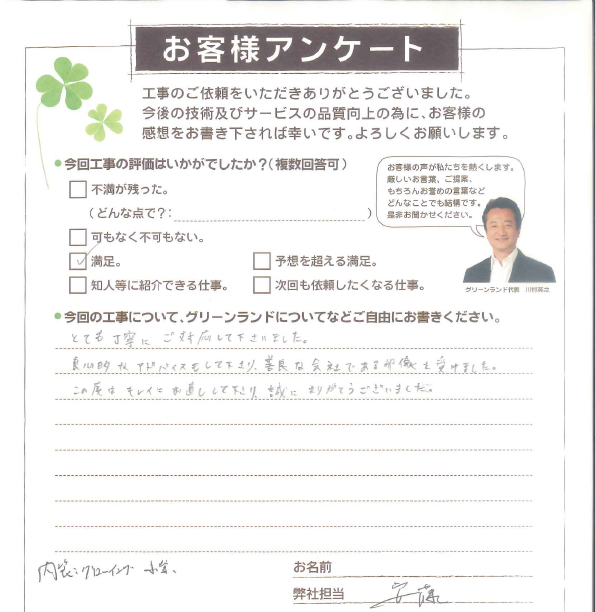 お客様アンケート
工事のご依頼をいただきありがとうございました。
今後の技術及びサービスの品質向上の為に、お客様の
感想をお書き下されば幸いです。よろしくお願いします。
●今回工事の評価はいかがでしたか？（複数回答可）
不満が残った。
（どんな点で？：　）
可もなく不可もない。
満足。
予想を超える満足。
知人等に紹介できる仕事。
次回も依頼したくなる仕事。
お客様の声が私たちを熱くします。
厳しいお言葉、ご提案、
もちろんお誉めの言葉など
どんなことでも結構です。
是非お聞かせください。
グリーンランド代表　川村英之
●今回の工事について、グリーンランドについてなどご自由にお書きください。
とても丁寧にご対応して下さいました。
良心的なアドバイスもして下さり、善良な会社である印象を受けました。
この度はキレイにお直しして下さり、誠にありがとうございました。
内装：フローイング
お名前
弊社担当
安藤